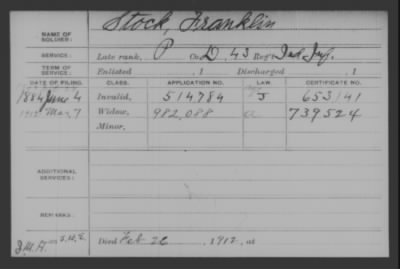 NAME OF SOLDIER: Stock, Franklin
SERVICE: Late rank, P Co. D, 43 Reg't Ind Inf.
TERM OF SERVICE: Enlisted , 1 Discharged , 1
DATE OF FILING. CLASS. APPLICATION NO. LAW. CERTIFICATE NO.
1884 June 4 Invalid, 514784 J 653141
1912 Mar, 7 Widow, 982,088 a 739524
Minor,
ADDITIONAL SERVICES:
REMARKS:
Died Feb 26 , 1912, at